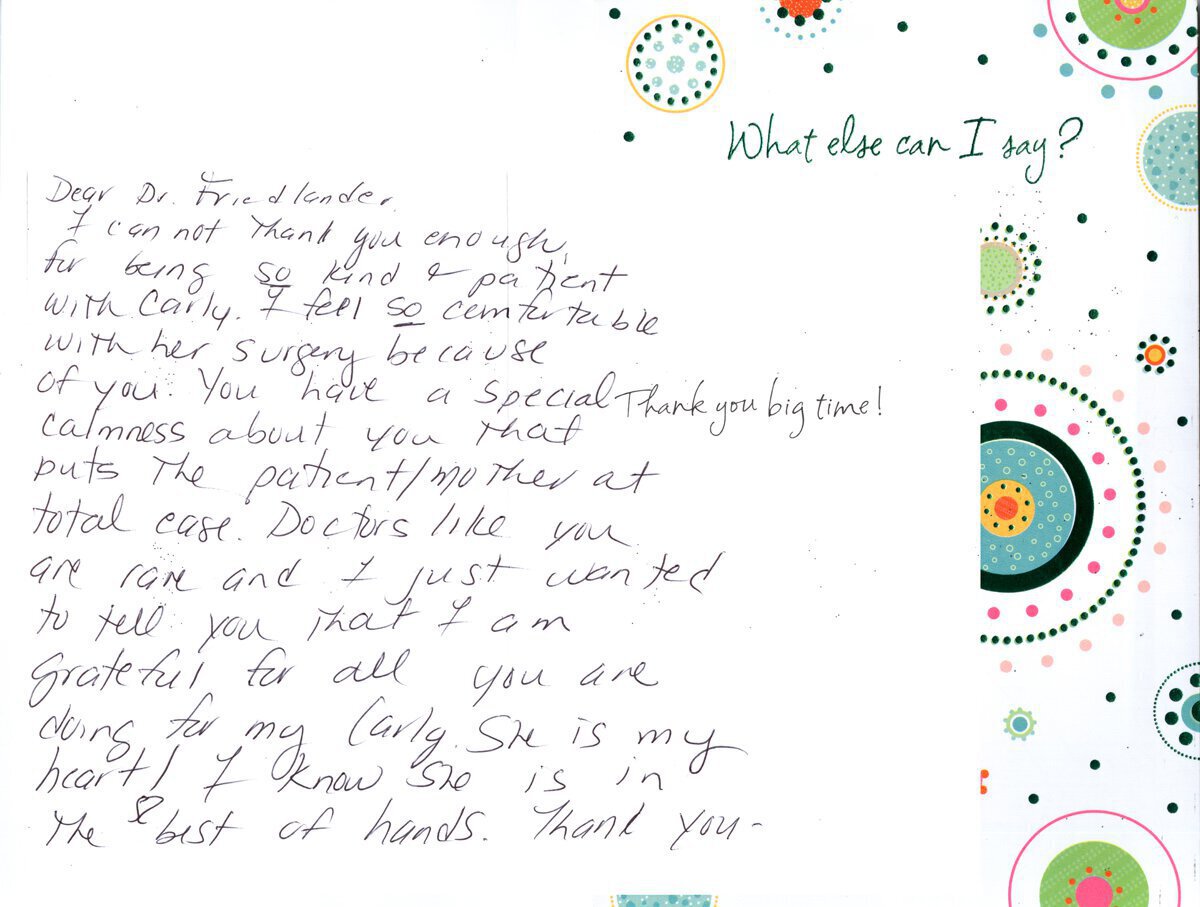 What else can I say?
Dear Dr. Friedlander.
I can not Thank you enough,
for being so kind & patient
with Carly. I feel so comfortable
with her surgery because
of you. You have a special
calmness about you that
puts the patient/mother at
total ease. Doctors like you
are rare and I just wanted
to tell you that I am
grateful for all you are
doing for my Carly. She is my
heart! I know she is in
the best of hands. Thank you-
Thank you big time!